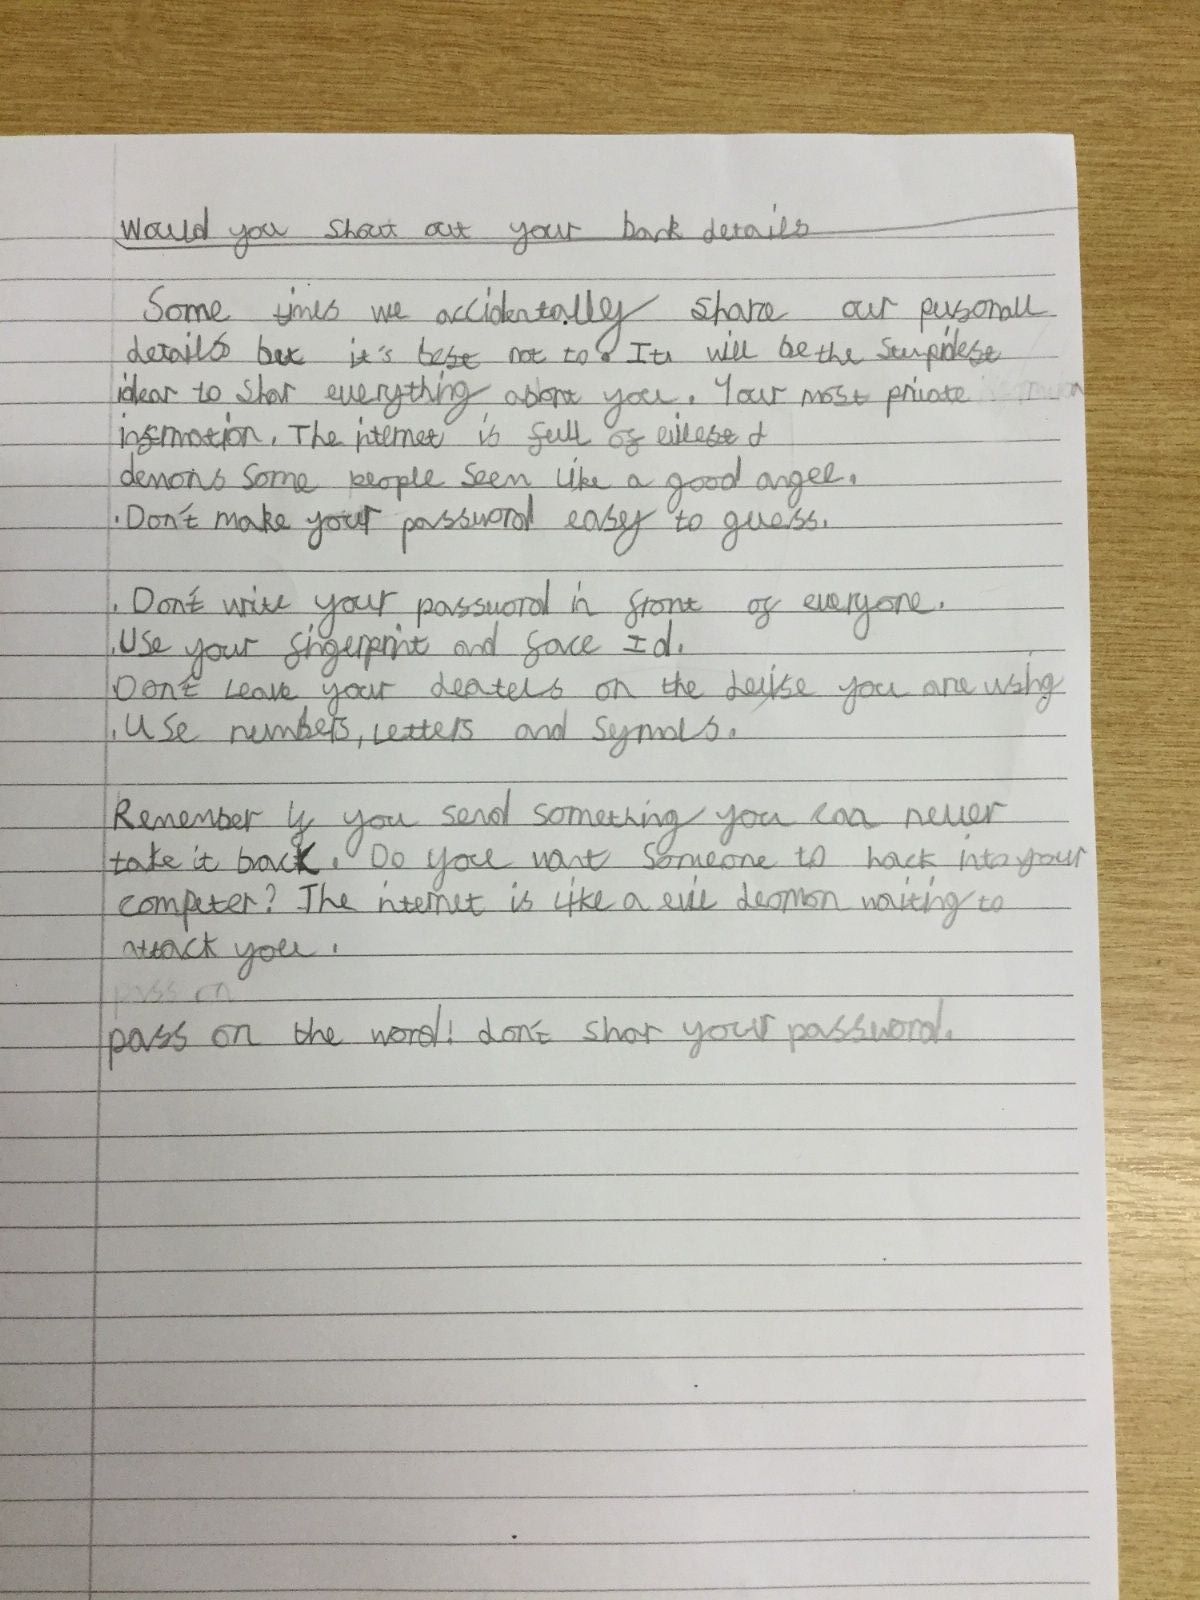 Would you shout out your bank details
Some times we accidentally share our pursonall
details but it's best not to. It will be the stupidest
idear to shar everything about you. Your most private
information. The internet is full of
demons some people seen like a good angel.
.Don't make your password easy to guess.
. Don't write your password in front of everyone.
.Use your fingerprint and face Id.
Don't leave your deatels on the devise you are using
.Use numbers, letters and symols.
Remember if you send something you can never
take it back. Do you want someone to hack into your
computer? The internet is like a evil deamon waiting to
attack you.
pass on
pass on the word! don't shar your password.